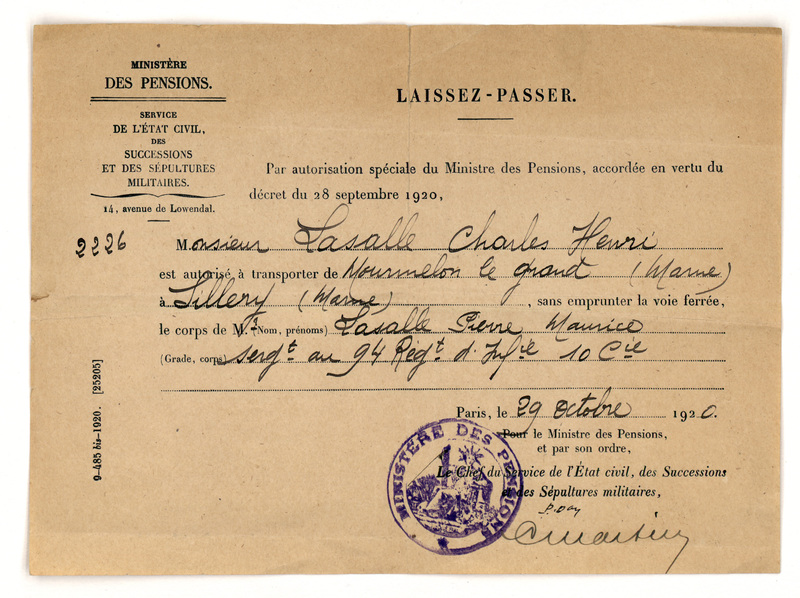 MINISTÈRE
DES PENSIONS.
SERVICE
DE L'ÉTAT CIVIL,
DES
SUCCESSIONS
ET DES SÉPULTURES
MILITAIRES.
14, avenue de Lowendal.
LAISSEZ-PASSER.
Par autorisation spéciale du Ministre des Pensions, accordée en vertu du
décret du 28 septembre 1920,
2226
Monsieur Lasalle Charles Henri
est autorisé à transporter de Mourmelon le grand (Marne)
à Sillery (Marne), sans emprunter la voie ferrée,
le corps de M. (Nom, prénoms) Lasalle Pierre Maurice
(Grade, corps) Sergt au 94 Régt d'Infie 10 Cie
9-485 bis-1920. [25205]
Paris, le 29 Octobre 1920.
Pour le Ministre des Pensions,
et par son ordre,
Le Chef du Service de l'État civil, des Successions
et des Sépultures militaires,
MINISTÈRE DES PENSIONS